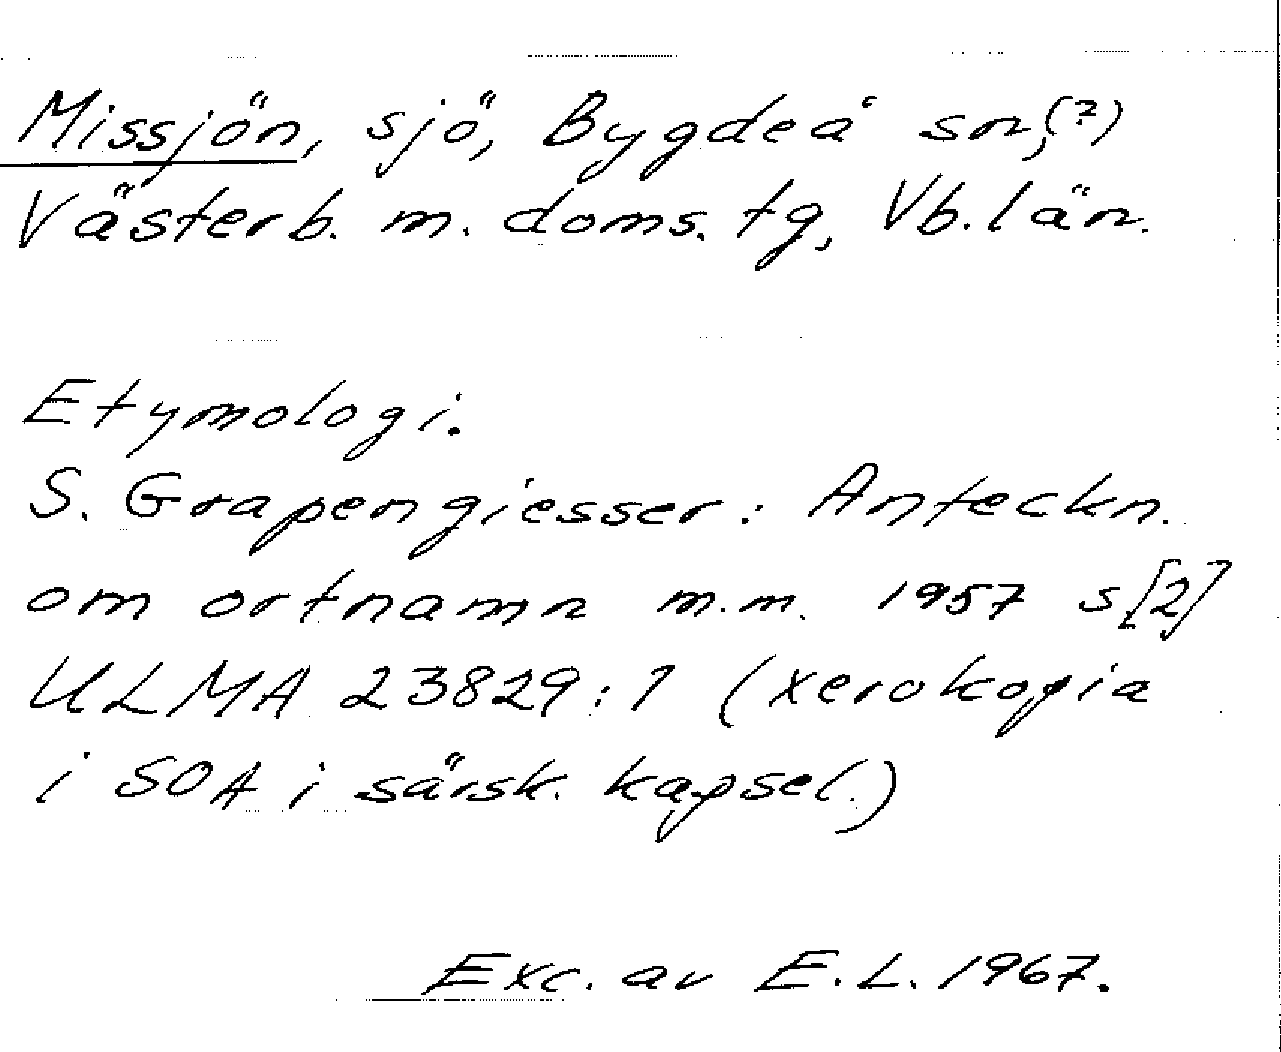 Missjön, sjö, Bygdeå sn,(?)
Västerb. m. doms. tg, Vb. län.
Etymologi.
S. Grapengiesser: Anteckn.
om ortnamn m.m. 1957 s[2]
ULMA 23829:1 (xerokopia
i SOA i särsk. kapsel.)
Exc. av E.L. 1967.